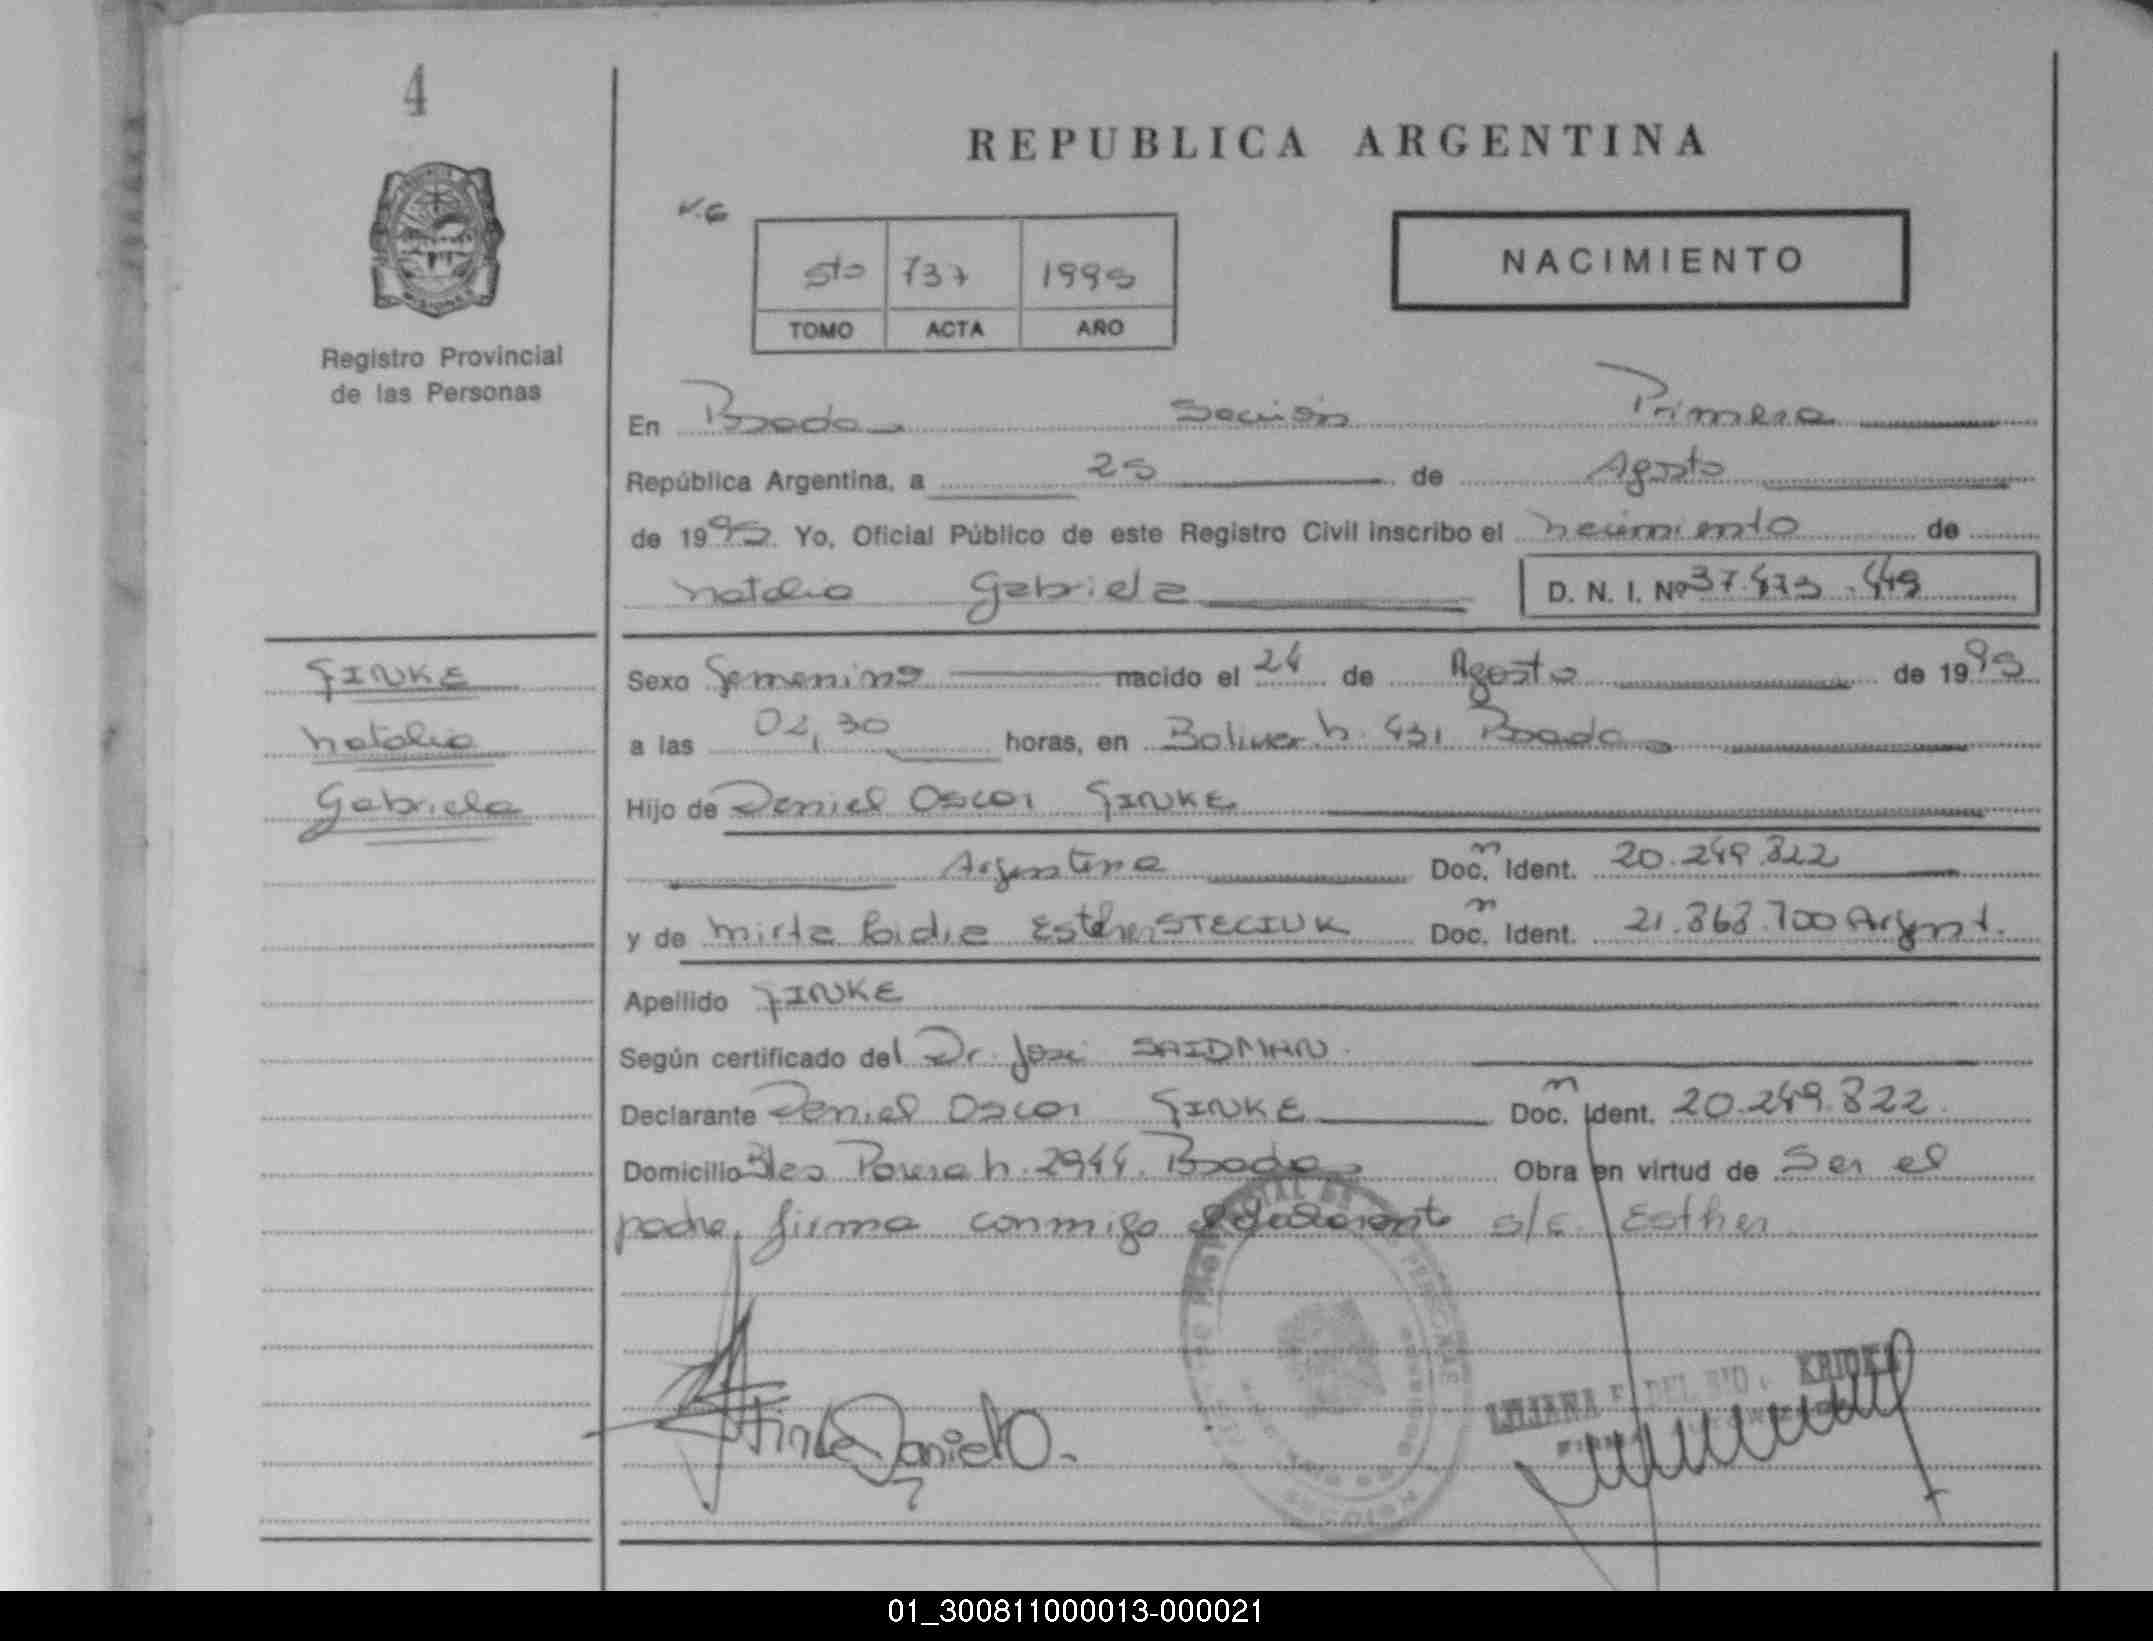 4
REPUBLICA ARGENTINA
NACIMIENTO
5to 737 1995
TOMO ACTA AÑO
Registro Provincial
de las Personas
En Posadas Sección Primera
República Argentina, a 25 de Agosto
de 1995 Yo, Oficial Público de este Registro Civil inscribo el nacimiento de
Natalia Gabriela D. N. I. Nº 37.473.449
FINKE
Natalia
Gabriela
Sexo Femenino nacido el 24 de Agosto de 1995
a las 02,30 horas, en Bolivar n. 431 Posadas
Hijo de Daniel Oscar FINKE
Argentina Doc. Ident. 20.249.822
y de Mirta Lidia Esther STECIUK Doc. Ident. 21.363.700 Argent.
Apellido FINKE
Según certificado del Dr. José SAIDMAN
Declarante Daniel Oscar FINKE Doc. Ident. 20.249.822
Domicilio Blas Parera n. 2944. Posadas Obra en virtud de Ser el
padre, firma conmigo el declarante s/c. Esther
Finke Daniel O.
LILIANA F. DEL RIO
01_300811000013-000021